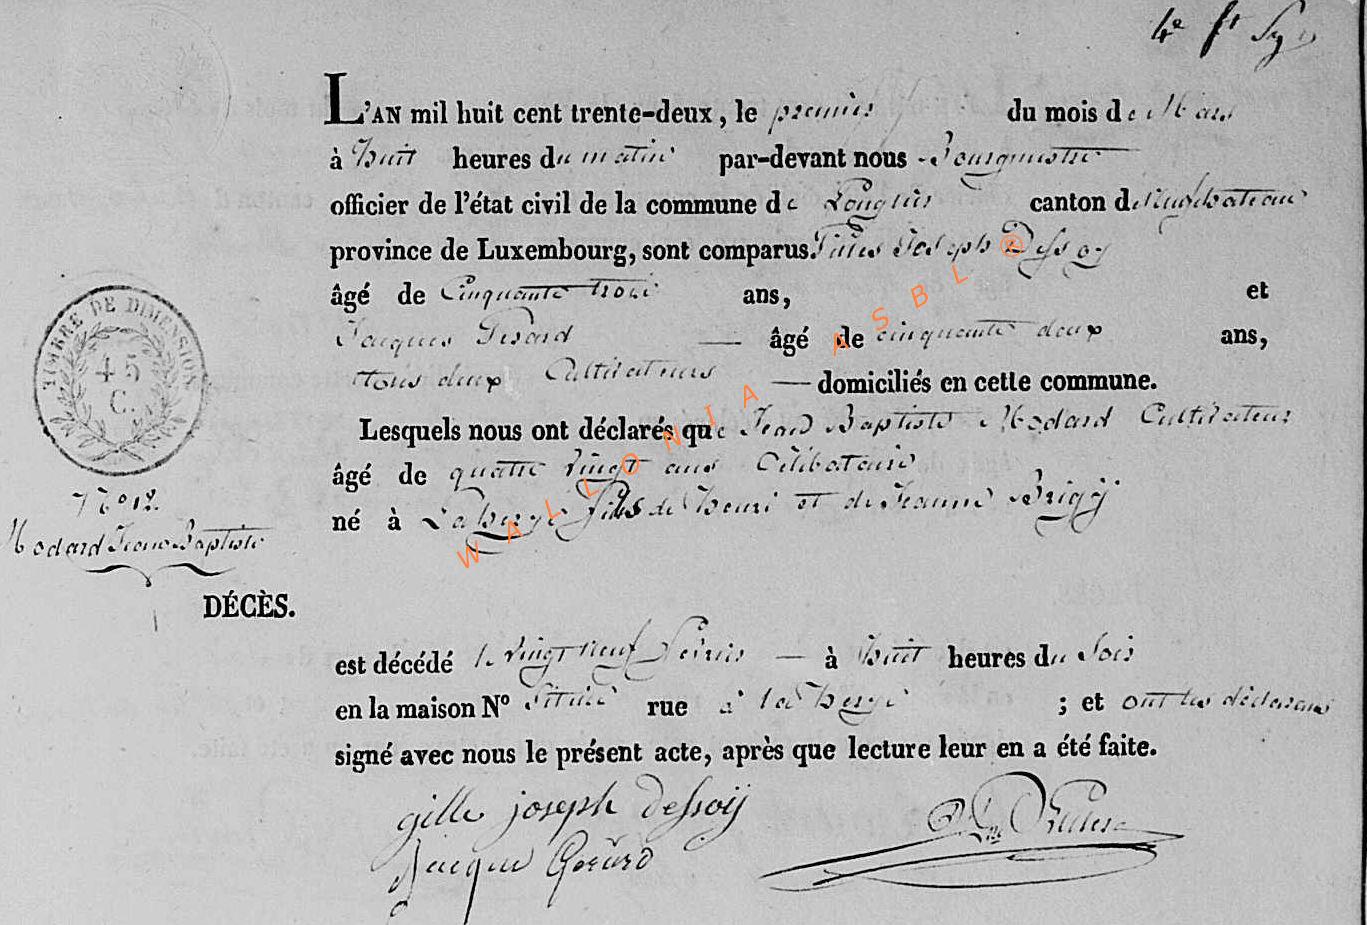 4e ft
L'AN mil huit cent trente-deux, le premier du mois de Mars
à huit heures du matin par-devant nous Bourgmestre
officier de l'état civil de la commune de Longlier canton de Neufchateau
province de Luxembourg, sont comparus Gilles Joseph Dessoy
âgé de Cinquante trois ans, et
Jacques Gerard — âgé de cinquante deux ans,
tous deux Cultivateurs — domiciliés en cette commune.
Lesquels nous ont déclarés que Jean Baptiste Modard Cultivateur
âgé de quatre vingt ans Célibataire
né à Laherye fils de Henri et de Jeanne
TIMBRE DE DIMENSION
45
C.
N° 12.
Modard Jean Baptiste
DÉCÈS.
est décédé le vingt neuf Fevrier — à huit heures du Soir
en la maison N° située rue à Laherye ; et ont les déclarans
signé avec nous le présent acte, après que lecture leur en a été faite.
gille joseph dessoij
Jacque Gerard
WALLONIA ASBL ®